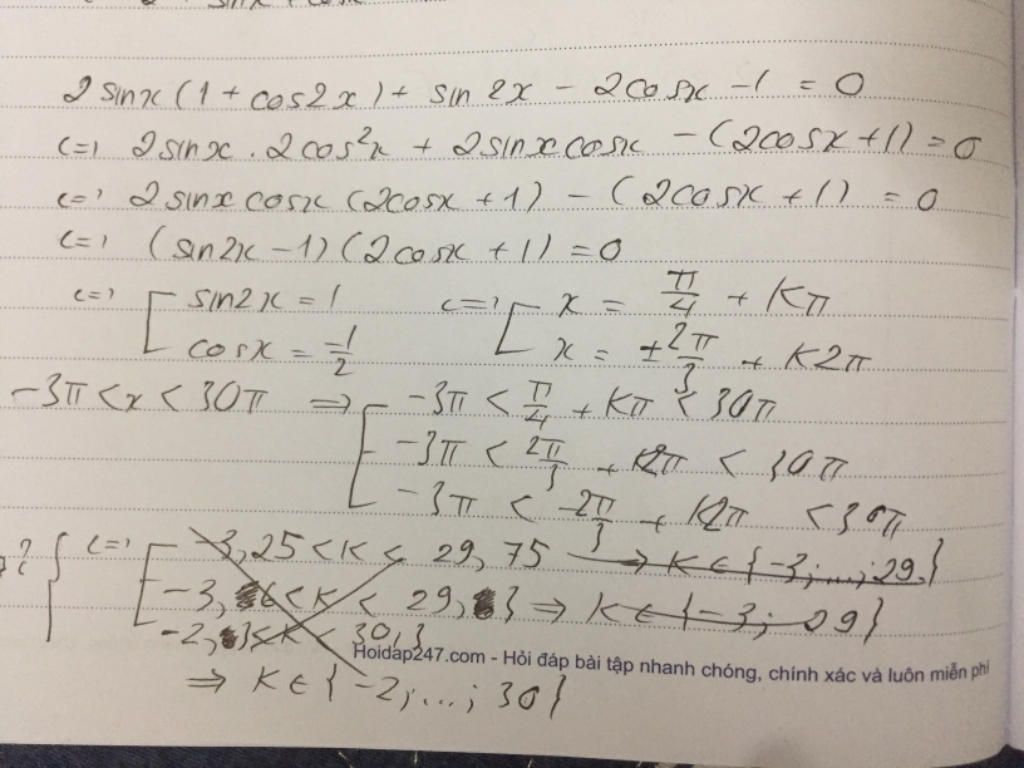 2 sinx (1 + cos2x) + sin 2x - 2cosx - 1 = 0
<=> 2sinx . 2cos²x + 2sinxcosx - (2cosx + 1) = 0
<=> 2sinxcosx (2cosx + 1) - (2cosx + 1) = 0
<=> (sin2x - 1) (2cosx + 1) = 0
<=> [ sin2x = 1 <=> [ x = π/4 + kπ
cosx = -1/2 x = ±2π/3 + k2π
-3π < x < 30π => [ -3π < π/4 + kπ < 30π
-3π < 2π/3 + k2π < 30π
-3π < -2π/3 + k2π < 30π
? { <=> [ -3,25 < k < 29,75 => k ∈ {-3;...;29}
-3, < k < 29, 3 => k ∈ {-3; 29}
-2, 3 < k < 30,3
Hoidap247.com - Hỏi đáp bài tập nhanh chóng, chính xác và luôn miễn phí
=> k ∈ {-2;...; 30}